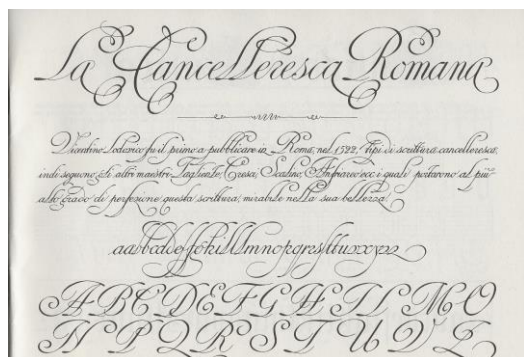 La Cancelleresca Romana
Vicentino Lodovico fu il primo a pubblicare in Roma, nel 1522, Tipi di scrittura cancelleresca,
indi seguono gli altri maestri: Tagliente, Cresa, Scalino, Amfiareo ecc i quali portarono al più
alto grado di perfezione questa scrittura, mirabile nella sua bellezza.
A B C D E F G H I L M O
N P Q R S T U V Z